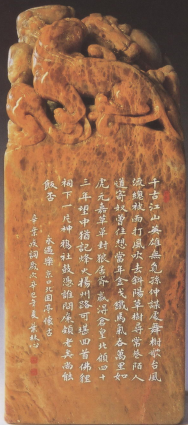 千古江山英雄無覓孫仲謀處舞榭歌台風
流總被雨打風吹去斜陽草樹尋常巷陌人
道寄奴曾住想當年金戈鐵馬氣吞萬里如
虎元嘉草草封狼居胥贏得倉皇北顧四十
三年望中猶記烽火楊州路可堪回首佛狸
祠下一片神鴉社鼓憑誰問廉頗老矣尚能
飯否
永遇樂 京口北固亭懷古
辛棄疾詞歲次辛巳